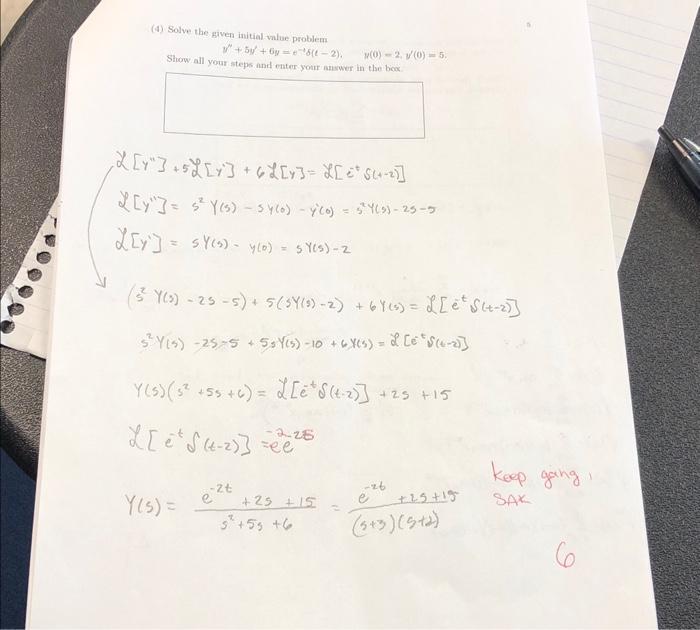 5
(4) Solve the given initial value problem
y'' + 5y' + 6y = e^{-t}δ(t − 2), y(0) = 2, y'(0) = 5.
Show all your steps and enter your answer in the box.
ℒ[y''] + 5ℒ[y'] + 6ℒ[y] = ℒ[e^{-t} δ(t-2)]
ℒ[y''] = s² Y(s) - s y(0) - y'(0) = s² Y(s) - 2s - 5
ℒ[y'] = s Y(s) - y(0) = s Y(s) - 2
(s² Y(s) - 2s - 5) + 5(sY(s) - 2) + 6Y(s) = ℒ[e^{-t} δ(t-2)]
s² Y(s) - 2s - 5 + 5sY(s) - 10 + 6Y(s) = ℒ[e^{-t} δ(t-2)]
Y(s)(s² + 5s + 6) = ℒ[e^{-t} δ(t-2)] + 2s + 15
ℒ[e^{-t} δ(t-2)] = e^{-2} e^{-2s}
Y(s) = (e^{-2t} + 2s + 15)/(s² + 5s + 6) = (e^{-2t} + 2s + 15)/((s+3)(s+2))
keep going,
SAK
6